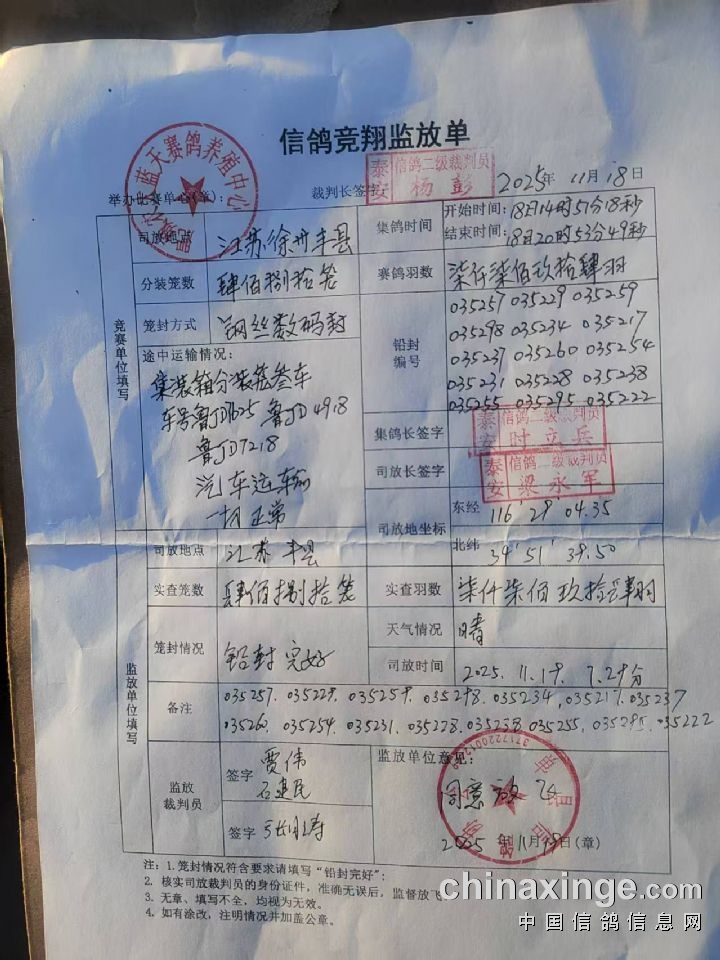 信鸽竞翔监放单
蓝天赛鸽养殖中心
举办比赛单位(章):
裁判长签字:
泰安 信鸽二级裁判员 杨彭
2025年 11月18日
司放地点 江苏徐州丰县
集鸽时间 开始时间:18日14时51分18秒
结束时间:18日20时53分49秒
分装笼数 肆佰捌拾笼
赛鸽羽数 柒仟柒佰玖拾肆羽
竞赛单位填写
笼封方式 钢丝数码封
铅封编号
035257 035229 035259
035298 035234 035217
035237 035260 035254
035231 035228 035238
035255 035295 035222
途中运输情况:
集装箱分装笼叁车
鲁JD4918
鲁JD7218
汽车运输
一切正常
集鸽长签字 泰安 信鸽二级裁判员 时立兵
司放长签字 泰安 信鸽二级裁判员 梁永军
司放地坐标
东经 116°29′04.35
北纬 34°51′39.50
监放单位填写
司放地点 江苏 丰县
实查笼数 肆佰捌拾笼
实查羽数 柒仟柒佰玖拾肆羽
笼封情况 铅封完好
天气情况 晴
司放时间 2025.11.19. 7.29分
备注
035257. 035229. 035259. 035298. 035234. 035217. 035237
035260. 035254. 035231. 035228. 035238. 035255. 035295. 035222
监放裁判员
签字 贾伟
石建民
签字
监放单位意见:
同意放飞
2025年11月19日(章)
注: 1.笼封情况符合要求请填写“铅封完好”;
2. 核实司放裁判员的身份证件，准确无误后，监督放飞
3. 无章、填写不全，均视为无效。
4. 如有涂改，注明情况并加盖公章。
chinaxinge.com
中国信鸽信息网